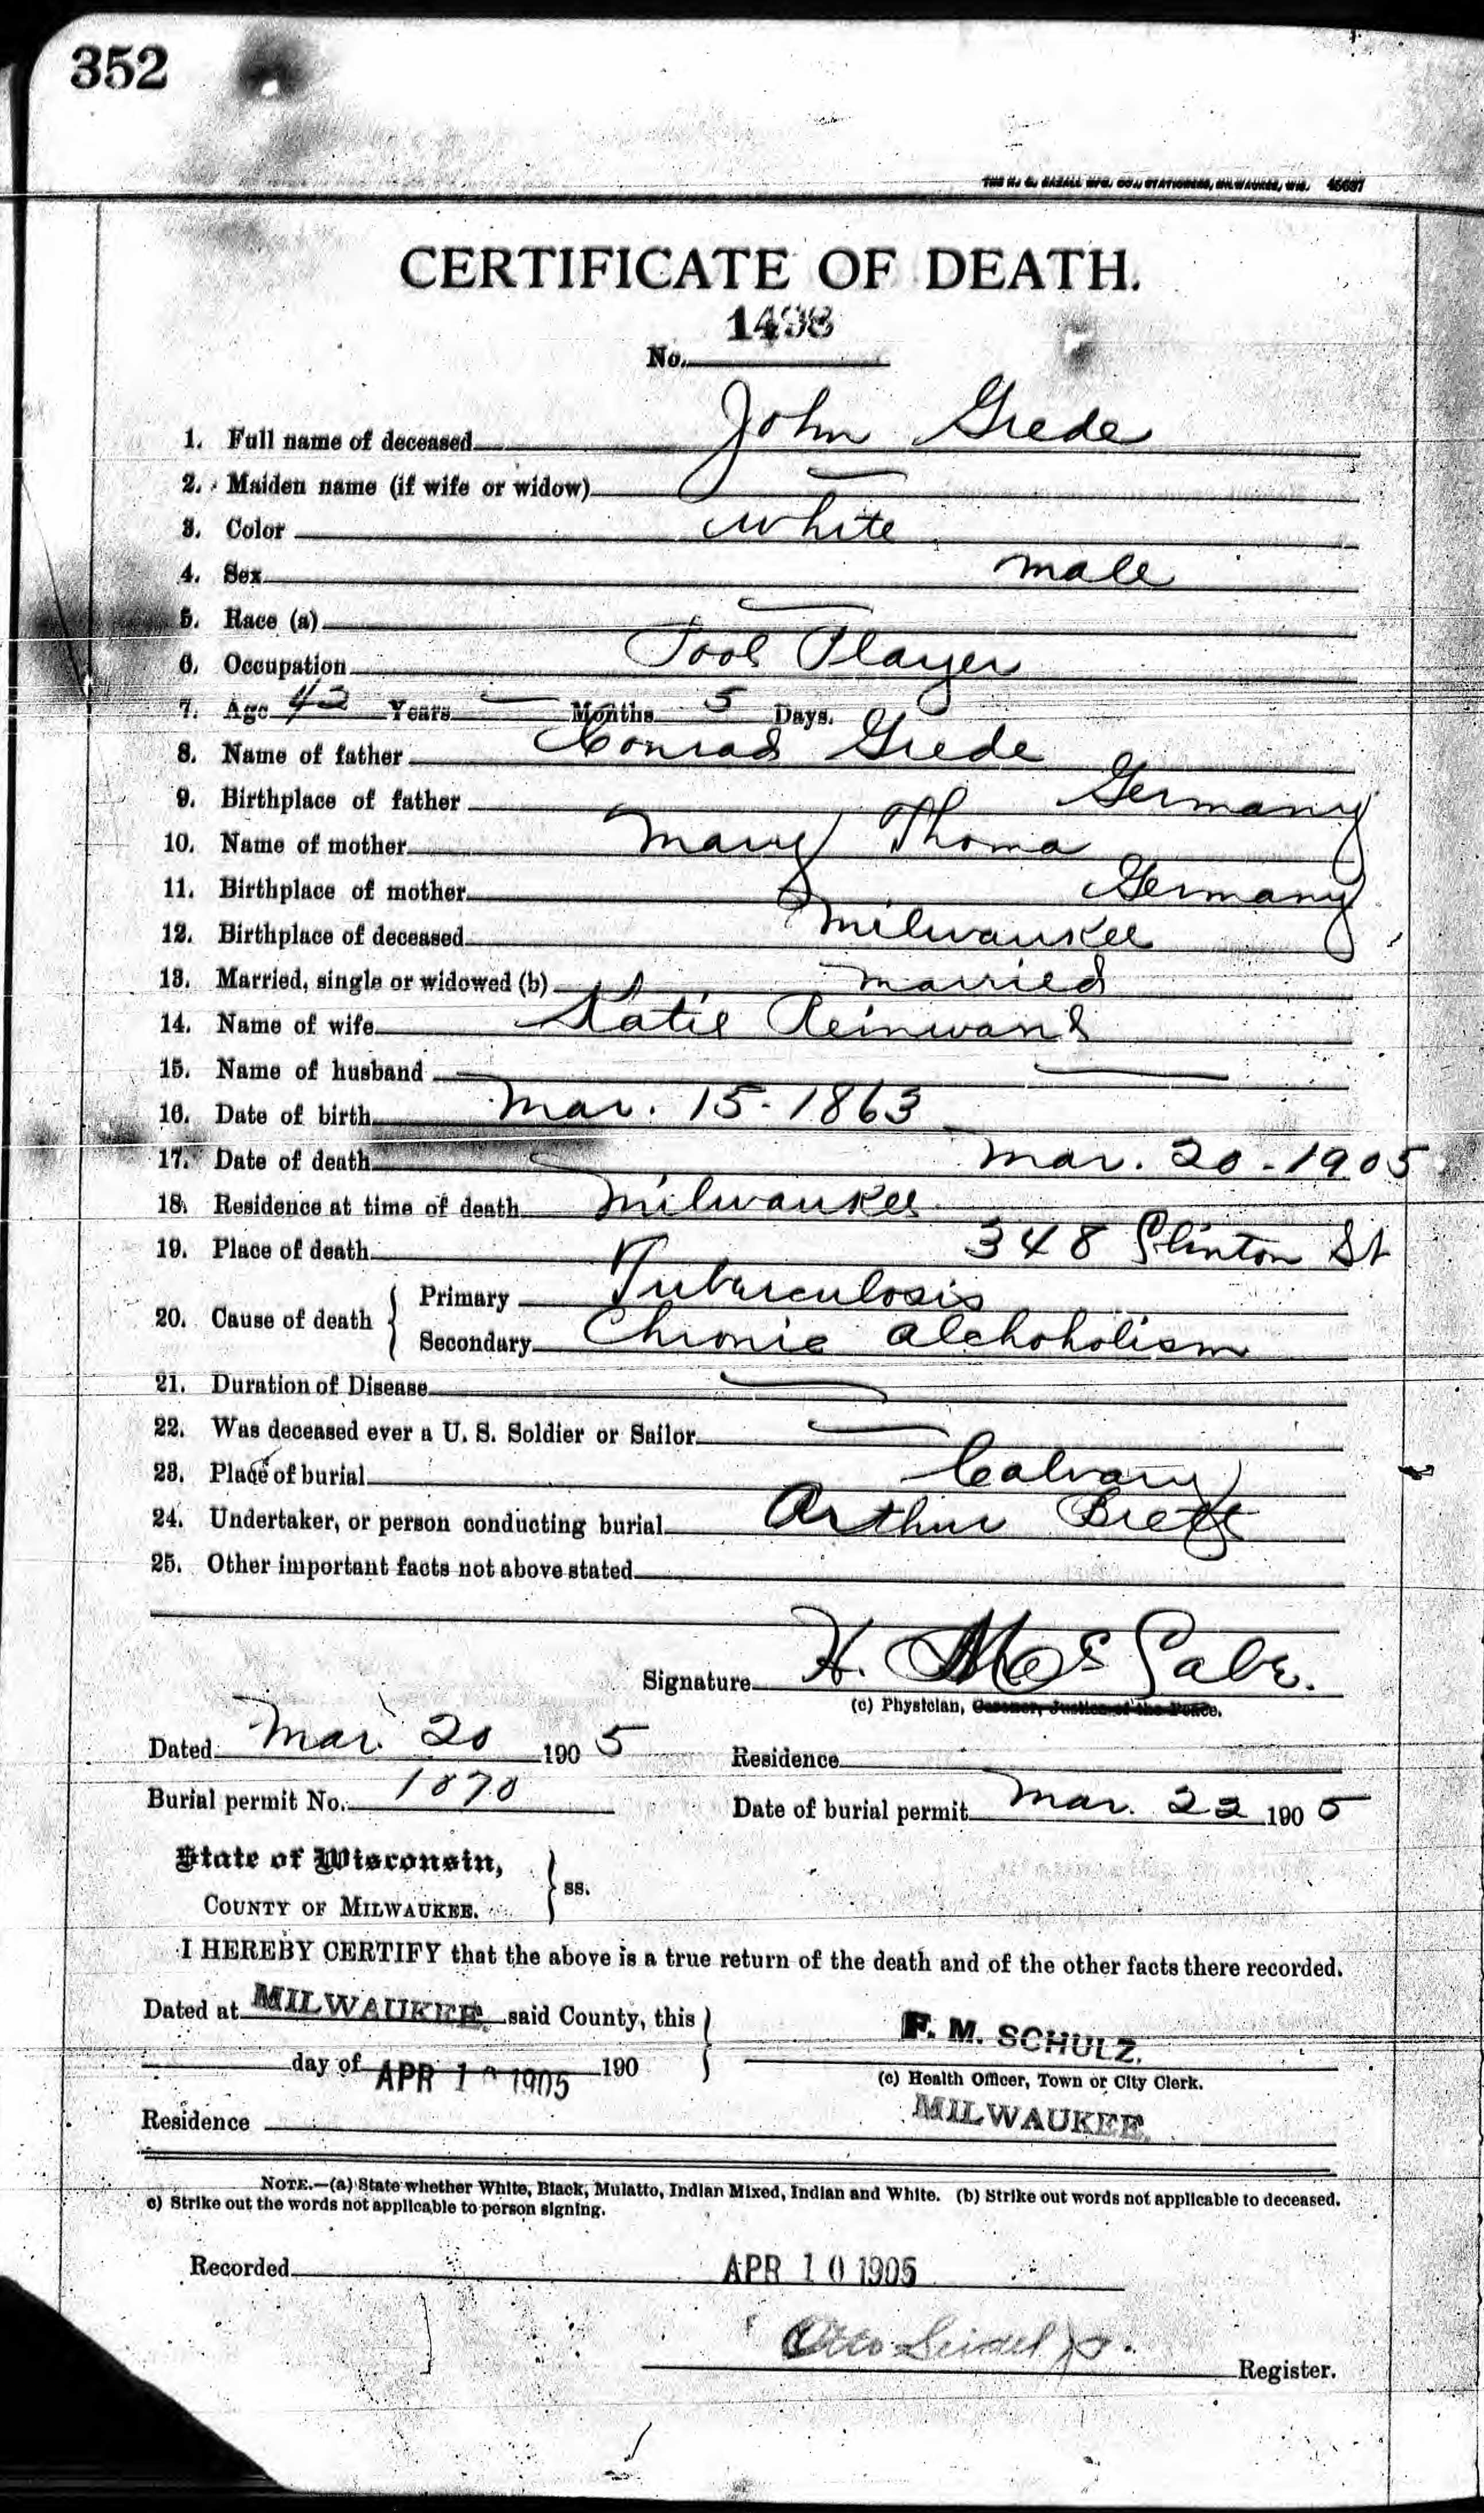 352
THE H. G. RAZALL MFG. CO., STATIONERS, MILWAUKEE, WIS. 45637
CERTIFICATE OF DEATH.
No. 1498
1. Full name of deceased John Grede
2. Maiden name (if wife or widow) —
3. Color White
4. Sex male
5. Race (a) —
6. Occupation Pool Player
7. Age 42 Years — Months 5 Days.
8. Name of father Conrad Grede
9. Birthplace of father Germany
10. Name of mother Mary Thoma
11. Birthplace of mother Germany
12. Birthplace of deceased Milwaukee
13. Married, single or widowed (b) married
14. Name of wife Katie Reinwand
15. Name of husband —
16. Date of birth Mar. 15-1863
17. Date of death Mar. 20-1905
18. Residence at time of death Milwaukee
19. Place of death 348 Clinton St
20. Cause of death { Primary Tuberculosis
Secondary Chronic alchoholism
21. Duration of Disease —
22. Was deceased ever a U. S. Soldier or Sailor —
23. Place of burial Calvary
24. Undertaker, or person conducting burial Arthur Brett
25. Other important facts not above stated
Signature H. McCabe.
(c) Physician, Coroner, Justice of the Peace.
Dated Mar. 20 1905 Residence
Burial permit No. 1870 Date of burial permit Mar. 22 1905
State of Wisconsin,
COUNTY OF MILWAUKEE. } ss.
I HEREBY CERTIFY that the above is a true return of the death and of the other facts there recorded.
Dated at MILWAUKEE said County, this }
F. M. SCHULZ.
day of APR 10 1905 190
(c) Health Officer, Town or City Clerk.
Residence MILWAUKEE.
NOTE.—(a) State whether White, Black, Mulatto, Indian Mixed, Indian and White. (b) Strike out words not applicable to deceased.
c) Strike out the words not applicable to person signing.
Recorded APR 10 1905
Otto Seidel Jr. Register.